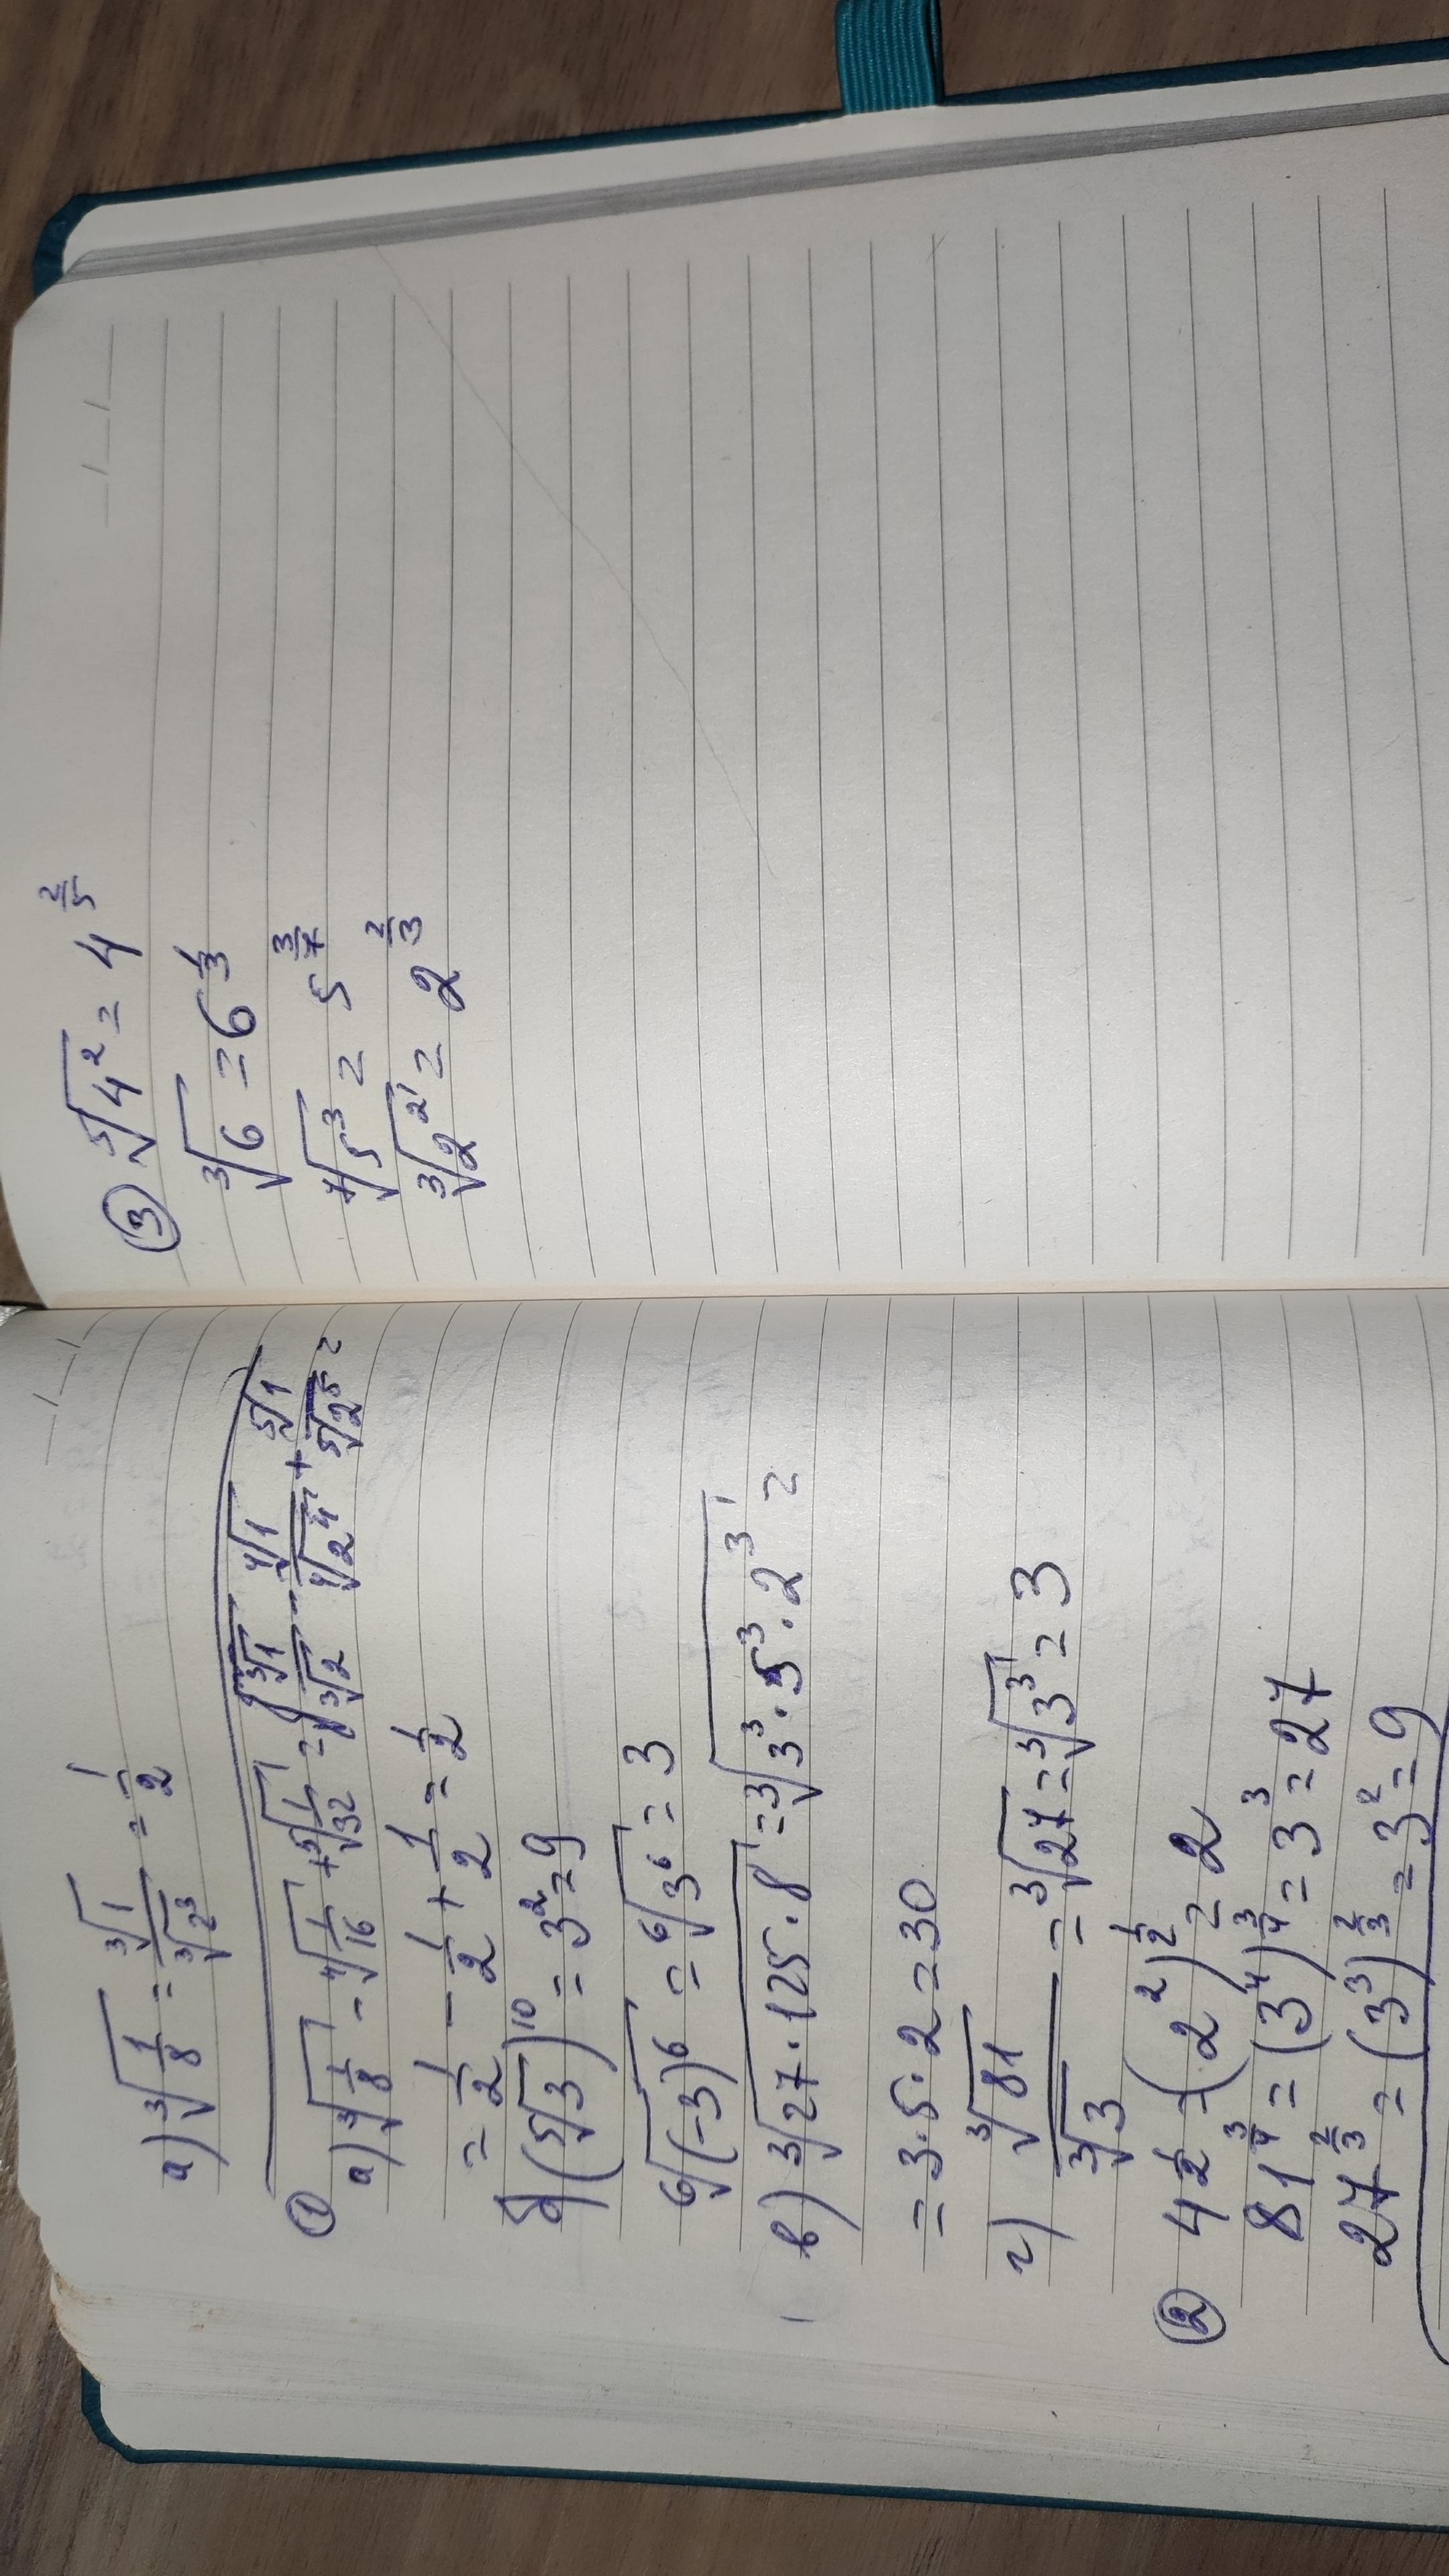 а) ∛(1/8) = ∛1/∛2³ = 1/2
① а) ∛(1/8) - ⁴√(1/16) + ⁵√(1/32) = ∛1/∛2 - ⁴√1/⁴√2⁴ + ⁵√1/⁵√2⁵ =
= 1/2 - 1/2 + 1/2 = 1/2
б) (⁵√3)¹⁰ = 3² = 9
⁶√(-3)⁶ = ⁶√3⁶ = 3
в) ∛(27·125·8) = ∛(3³·5³·2³) =
= 3·5·2 = 30
г) ∛81/∛3 = ∛27 = ∛3³ = 3
② 4^(1/2) = (2²)^(1/2) = 2
81^(3/4) = (3⁴)^(3/4) = 3³ = 27
27^(2/3) = (3³)^(2/3) = 3² = 9
③ ⁵√4² = 4^(2/5)
∛6 = 6^(1/3)
⁷√5³ = 5^(3/7)
∛2² = 2^(2/3)